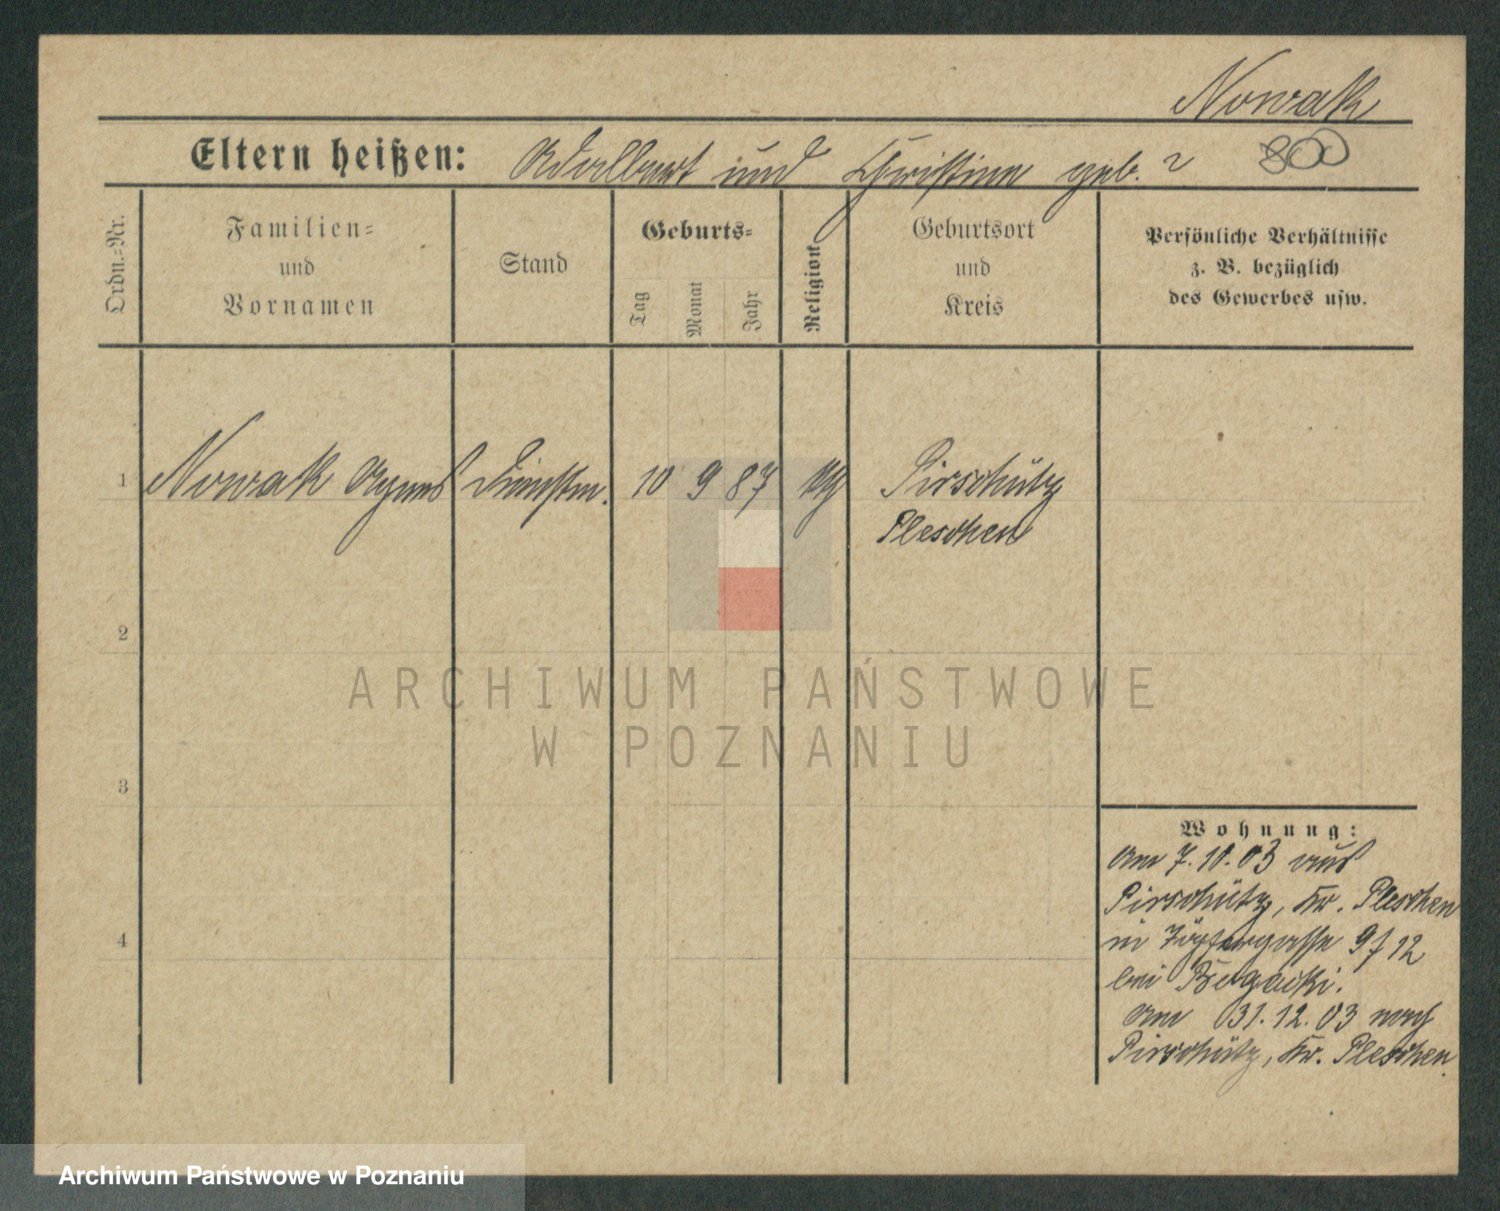 Nowak
Eltern heißen: Adalbert und Christine geb. ? 800
Ordn.-Nr.
Familien-
und
Vornamen
Stand
Geburts-
Tag
Monat
Jahr
Religion
Geburtsort
und
Kreis
Persönliche Verhältnisse
z. B. bezüglich
des Gewerbes usw.
1 Nowak Agnes Dienstm. 10 9 87 Pirschütz
Pleschen
2
3
4
ARCHIWUM PAŃSTWOWE
W POZNANIU
Wohnung:
Am 7.10.03 aus
Pirschütz, Kr. Pleschen
in Töpfergasse 9 f 12
bei
Am 31.12.03 nach
Pirschütz, Kr. Pleschen.
Archiwum Państwowe w Poznaniu